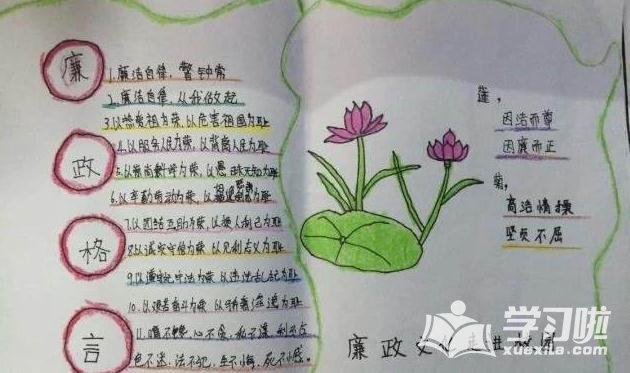 廉
政
格
言
1.廉洁自律，警钟常
2.廉洁自律，从我做起
3.以热爱祖为荣，以危害祖国为耻
4.以服务人民为荣，以背离人民为耻
5.以崇尚科学为荣，以愚昧无知为耻
6.以辛勤劳动为荣，以
7.以团结互助为荣，以损人利己为耻
8.以诚实守信为荣，以见利忘义为耻
9.以遵纪守法为荣，以违法乱纪为耻
10.以艰苦奋斗为荣，以骄奢淫逸为耻
11.嘴不馋，心不贪，
色不迷，法不犯，生不悔，死不憾。
莲，
因洁而尊
因廉而正
菊，
高洁情操
坚贞不屈
廉政文化走进校园
学习啦
xuexila.com